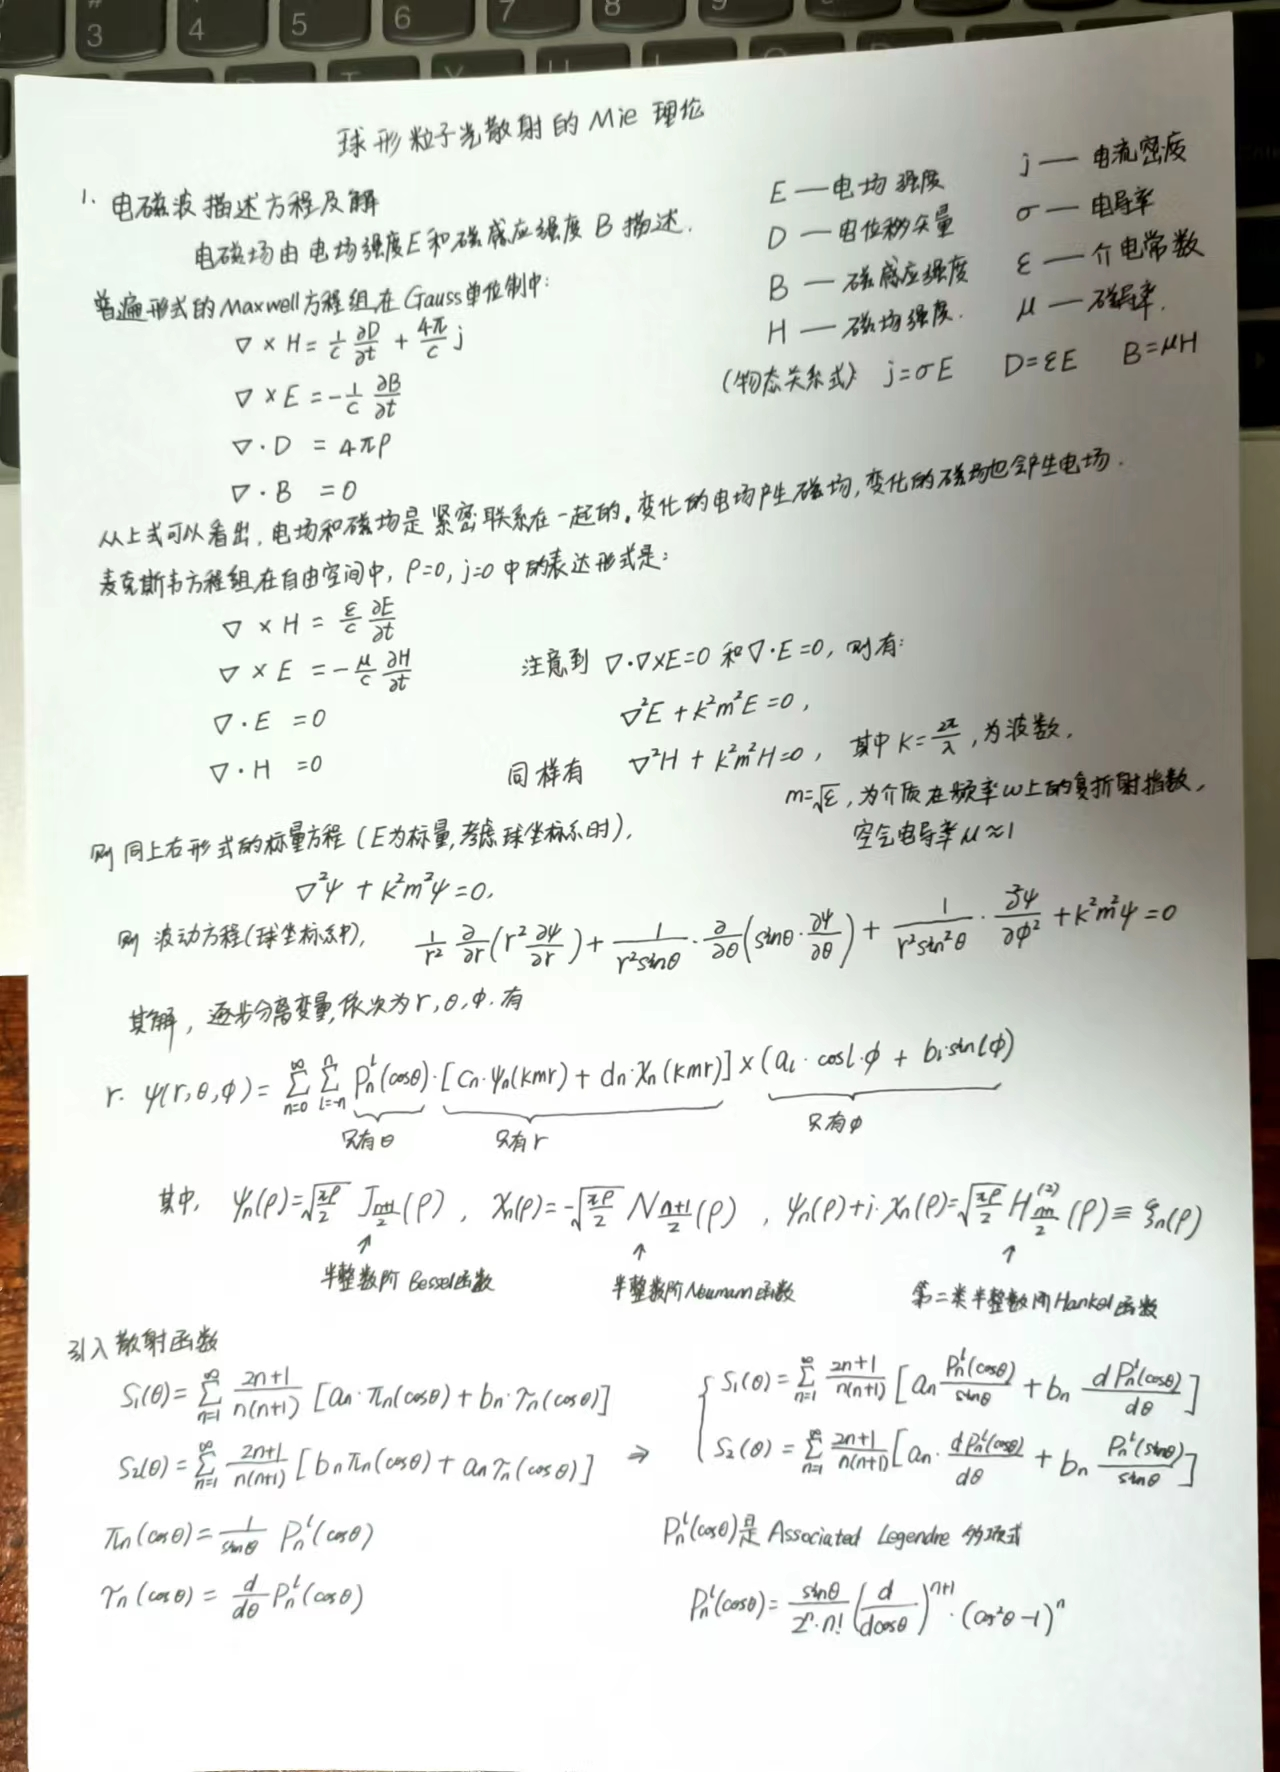 球形粒子光散射的Mie理论
1. 电磁波描述方程及解
电磁场由电场强度E和磁感应强度B描述.
普遍形式的Maxwell方程组在Gauss单位制中:
∇×H = 1/c ∂D/∂t + 4π/c j
∇×E = -1/c ∂B/∂t
∇·D = 4πρ
∇·B = 0
E — 电场强度 j — 电流密度
D — 电位移矢量 σ — 电导率
B — 磁感应强度 ε — 介电常数
H — 磁场强度. μ — 磁导率.
(物态关系式) j=σE D=εE B=μH
从上式可以看出,电场和磁场是紧密联系在一起的。变化的电场产生磁场,变化的磁场也会产生电场.
麦克斯韦方程组在自由空间中, ρ=0, j=0中的表达形式是:
∇×H = ε/c ∂E/∂t
∇×E = -μ/c ∂H/∂t
∇·E = 0
∇·H = 0
注意到 ∇·∇×E=0 和 ∇·E=0, 则有:
∇²E + k²m²E = 0,
同样有 ∇²H + k²m²H=0, 其中 k=2π/λ, 为波数,
m=√ε, 为介质在频率ω上的复折射指数,
空气电导率μ≈1
则同上右形式的标量方程(E为标量,考虑球坐标系时),
∇²ψ + k²m²ψ=0,
则波动方程(球坐标系中), 1/r² ∂/∂r (r² ∂ψ/∂r) + 1/(r²sinθ) · ∂/∂θ (sinθ · ∂ψ/∂θ) + 1/(r²sin²θ) · ∂²ψ/∂φ² + k²m²ψ = 0
其解, 逐步分离变量,依次为r, θ, φ. 有
r· ψ(r,θ,φ) = ∑_{n=0}^{∞} ∑_{l=-n}^{n} P_n^l(cosθ)·[c_n·ψ_n(kmr) + d_n·χ_n(kmr)] × (a_l·cosl·φ + b_l·sin(lφ)
只有θ 只有r 只有φ
其中, ψ_n(ρ)=√(πρ/2) J_{(n+1)/2}(ρ), χ_n(ρ)=-√(πρ/2) N_{(n+1)/2}(ρ), ψ_n(ρ)+i·χ_n(ρ)=√(πρ/2) H^{(2)}_{(n+1)/2}(ρ) ≡ ξ_n(ρ)
↑ ↑ ↑
半整数阶Bessel函数 半整数阶Neumann函数 第二类半整数阶Hankel函数
引入散射函数
S₁(θ) = ∑_{n=1}^{∞} (2n+1)/(n(n+1)) [a_n·π_n(cosθ) + b_n·τ_n(cosθ)]
S₂(θ) = ∑_{n=1}^{∞} (2n+1)/(n(n+1)) [b_nπ_n(cosθ) + a_nτ_n(cosθ)] ⇒
π_n(cosθ) = 1/sinθ P_n^l(cosθ)
τ_n(cosθ) = d/dθ P_n^l(cosθ)
{ S₁(θ) = ∑_{n=1}^{∞} (2n+1)/(n(n+1)) [a_n P_n^l(cosθ)/sinθ + b_n dP_n^l(cosθ)/dθ]
S₂(θ) = ∑_{n=1}^{∞} (2n+1)/(n(n+1)) [a_n· dP_n^l(cosθ)/dθ + b_n P_n^l(sinθ)/sinθ]
P_n^l(cosθ)是 Associated Legendre 多项式
P_n^l(cosθ) = sinθ/(2ⁿ·n!) (d/dcosθ)^{n+1}·(cos²θ-1)ⁿ